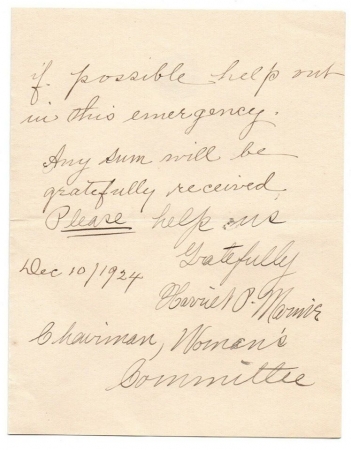 if possible help out
in this emergency.
Any sum will be
gratefully received,
Please help us
Gratefully
Dec 10/1924
Harriet P.
Chairman, Woman's
Committee